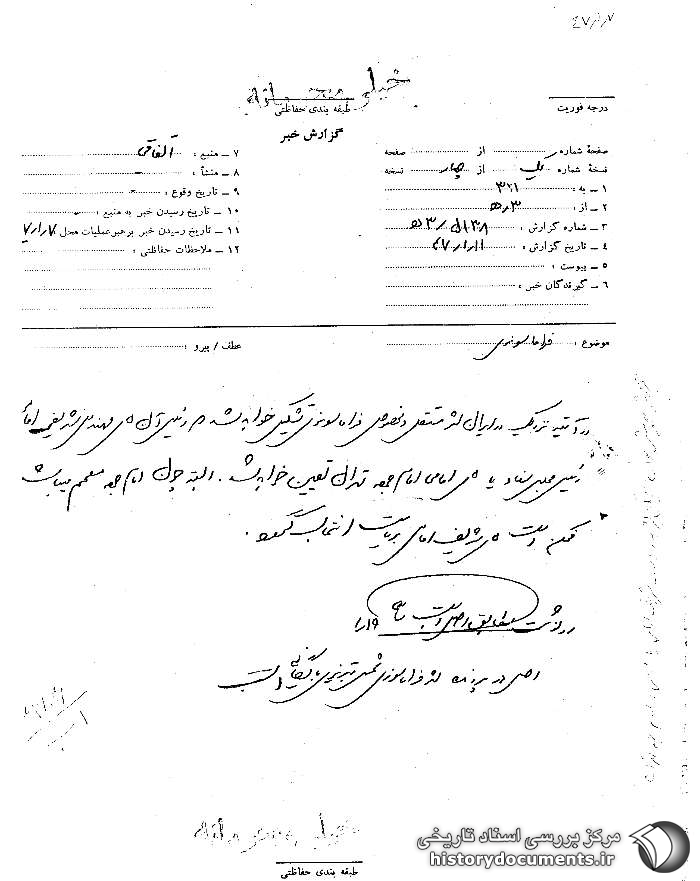 ۴۷/۱/۷
خیلی محرمانه
طبقه بندی حفاظتی
درجه فوریت
گزارش خبر
صفحهٔ شماره از صفحه
نسخهٔ شماره یک از چهار نسخه
۱ ـ به : ۳۲۱
۲ ـ از : ۳ ه‍
۳ ـ شماره گزارش :
۴ ـ تاریخ گزارش :
۵ ـ پیوست :
۶ ـ گیرندگان خبر :
۷ ـ منبع : اتفاقی
۸ ـ منشأ : ـ
۹ ـ تاریخ وقوع : ـ
۱۰ ـ تاریخ رسیدن خبر به منبع : ـ
۱۱ ـ تاریخ رسیدن خبر برهبر عملیات محل
۱۲ ـ ملاحظات حفاظتی :
موضوع : فراماسونری
عطف / پیرو :
در آتیه نزدیک در ایران لژ مستقل و بخصوص فراماسونری تشکیل خواهد شد و رئیس آن آقای مهندس شریف امامی
رئیس مجلس سنا و یا آقای امامی امام جمعه تهران تعیین خواهد شد . البته چون امام جمعه معمم میباشد
ممکن است آقای شریف امامی بریاست انتخاب گردد .
رونوشت مطابق اصل است
اصل در پرونده لژ فراماسونری شمس تبریزی بایگانی است
خیلی محرمانه
طبقه بندی حفاظتی
مرکز بررسی اسناد تاریخی
historydocuments.ir